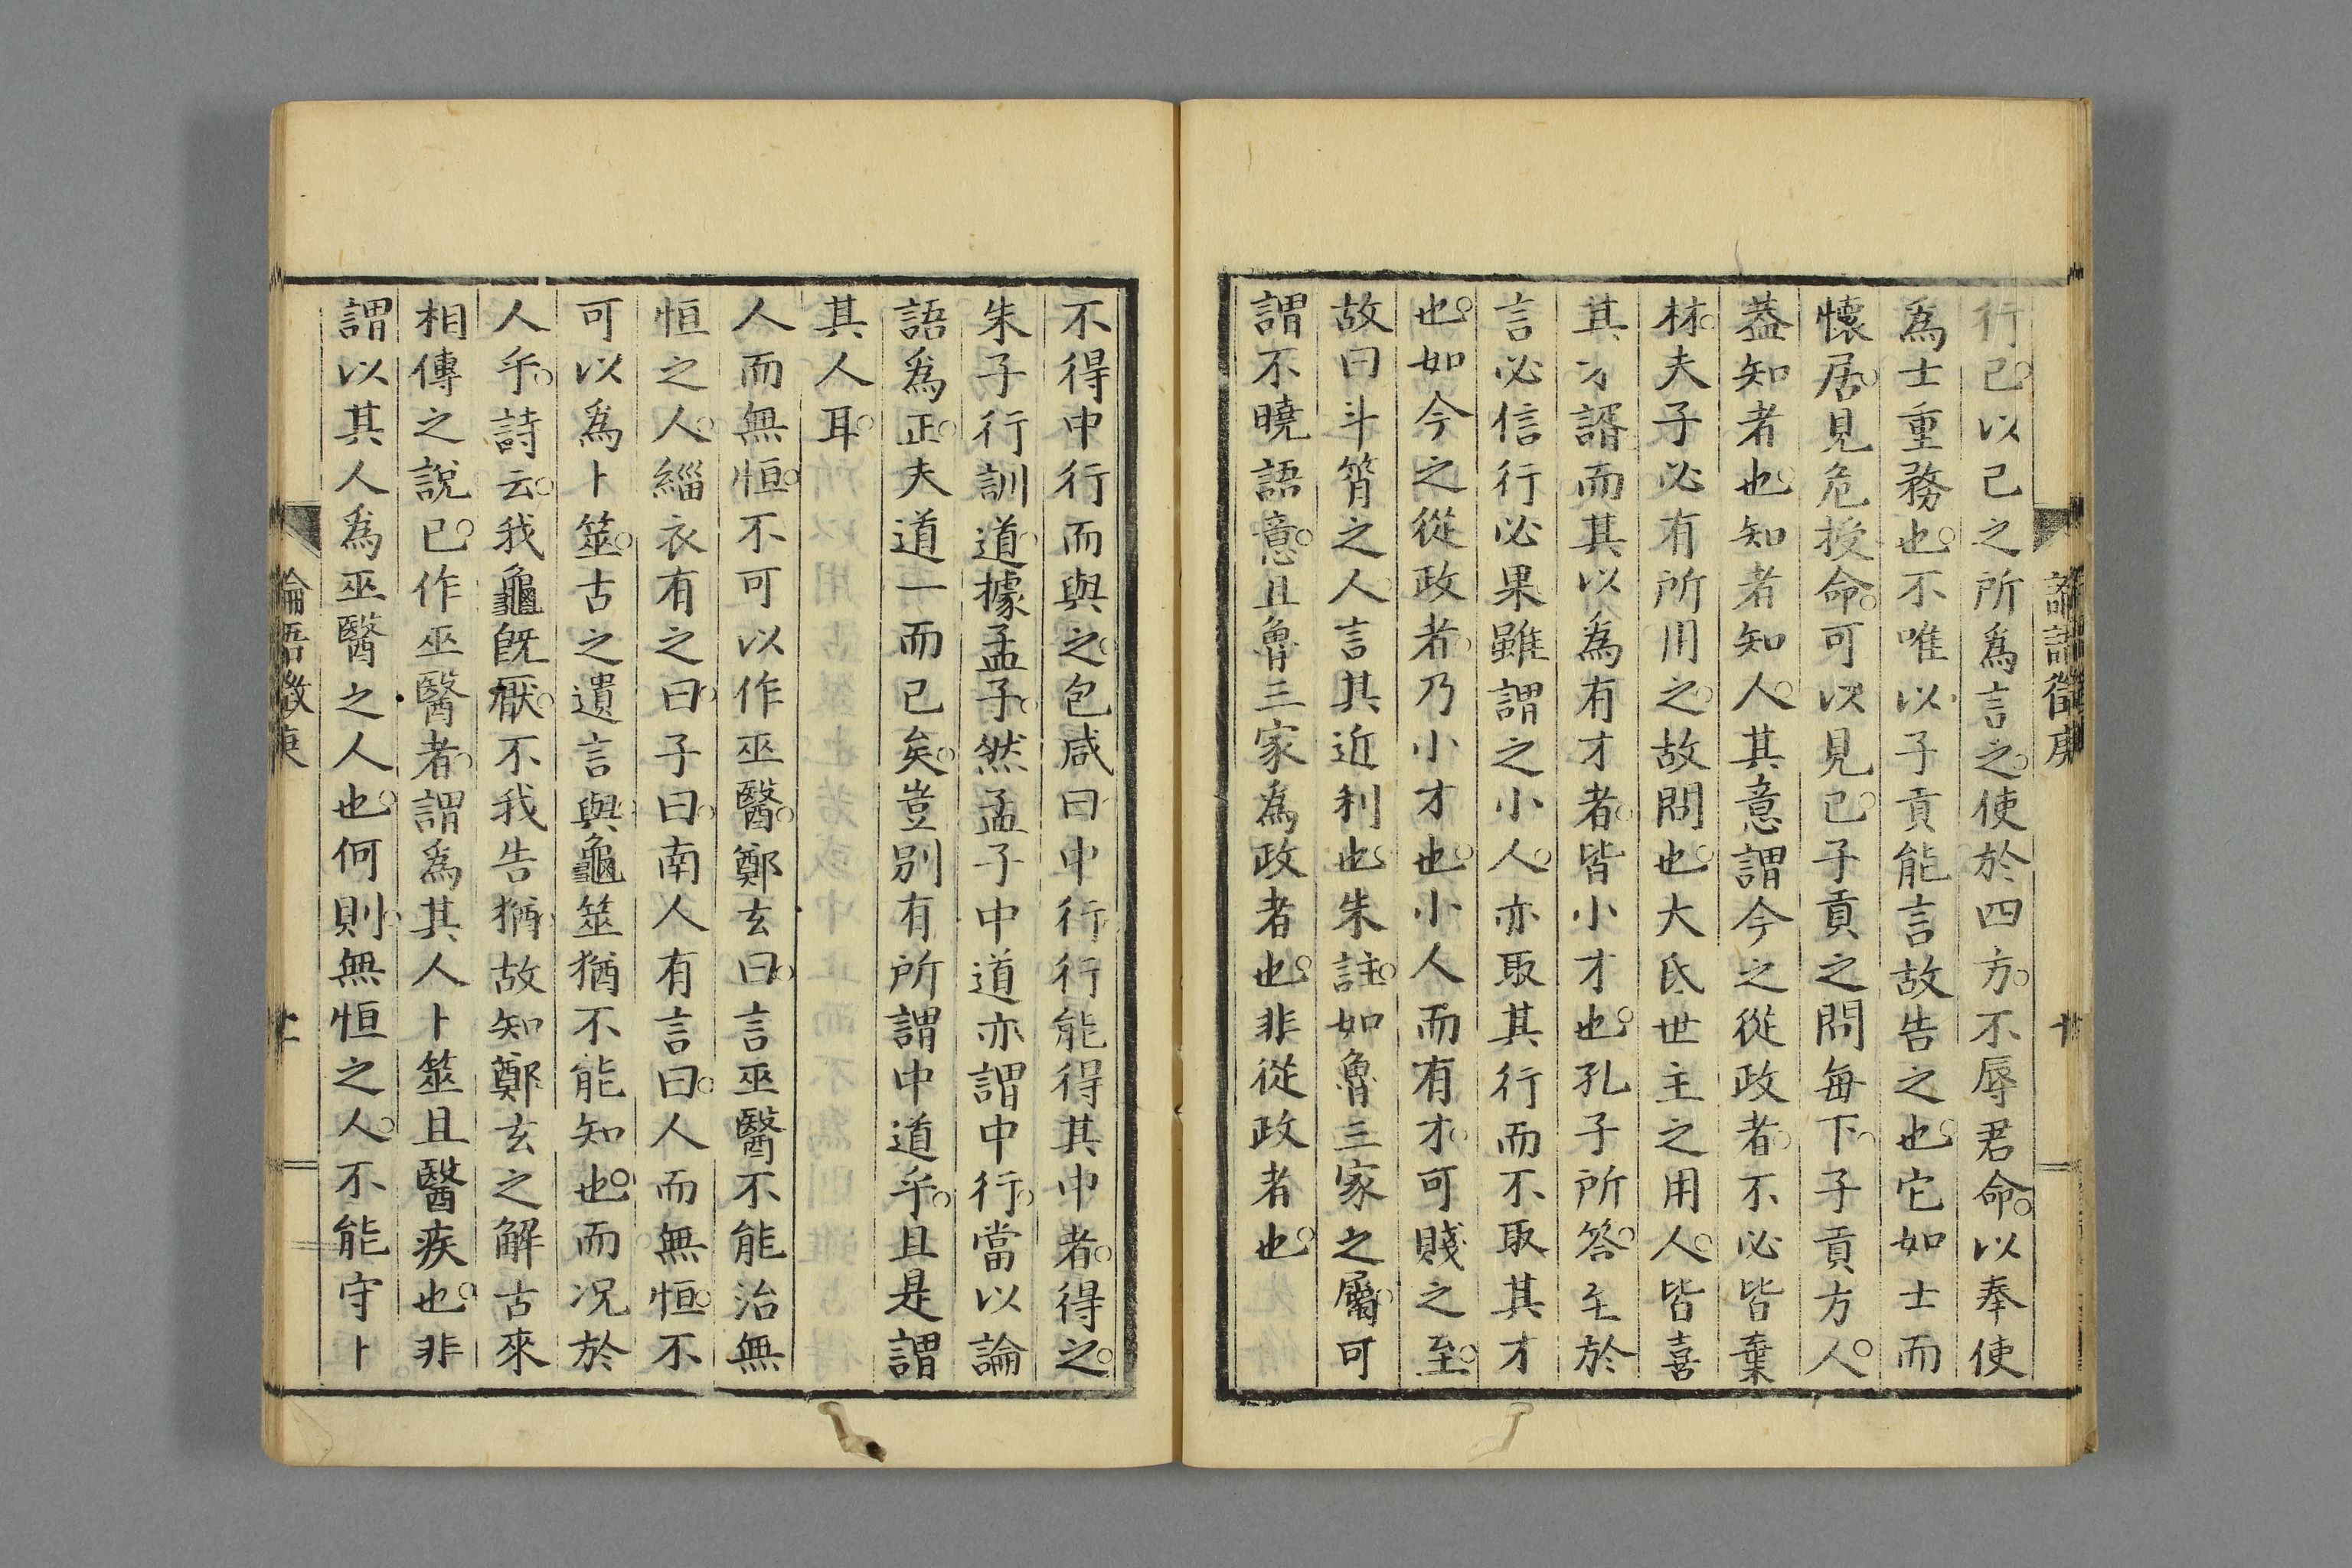 論語徵庚
行己以己之所為言之使於四方不辱君命以奉使
為士重務也不唯以子貢能言故告之也它如士而
懷居見危授命可以見已子貢之問每下子貢方人
蓋知者也知者知人其意謂今之從政者不必皆棄
材夫子必有所用之故問也大氐世主之用人皆喜
其才諝而其以為有才者皆小才也孔子所答至於
言必信行必果雖謂之小人亦取其行而不取其才
也如今之從政者乃小才也小人而有才可賤之至
故曰斗筲之人言其近利也朱註如魯三家之屬可
謂不曉語意且魯三家為政者也非從政者也
不得中行而與之包咸曰中行行能得其中者得之
朱子行訓道據孟子然孟子中道亦謂中行當以論
語為正夫道一而已矣豈別有所謂中道乎且是謂
其人耳
人而無恒不可以作巫醫鄭玄曰言巫醫不能治無
恒之人緇衣有之曰子曰南人有言曰人而無恒不
可以為卜筮古之遺言與龜筮猶不能知也而況於
人乎詩云我龜既厭不我告猶故知鄭玄之解古來
相傳之說已作巫醫者謂為其人卜筮且醫疾也非
謂以其人為巫醫之人也何則無恒之人不能守卜
論語徵庚